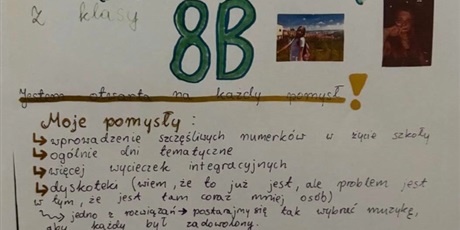 z klasy
8B
Jestem otwarta na każdy pomysł!
Moje pomysły:
↳ wprowadzenie szczęśliwych numerków w życie szkoły
↳ ogólnie dni tematyczne
↳ więcej wycieczek integracyjnych
↳ dyskoteki (wiem, że to już jest, ale problem jest
w tym, że jest tam coraz mniej osób)
↳ jedno z rozwiązań → postarajmy się tak wybrać muzykę,
aby każdy był zadowolony.